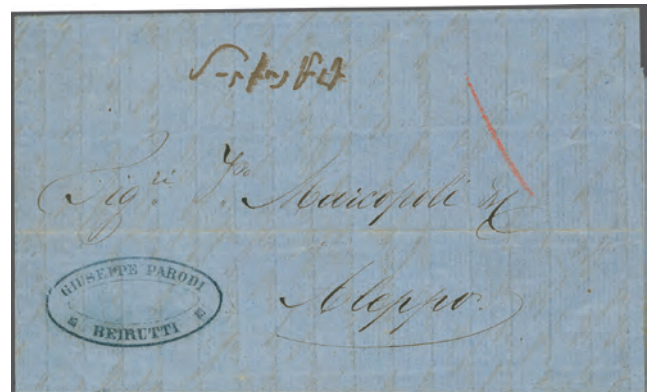 Sig.ri Marcopoli
Aleppo.
GIUSEPPE PARODI
BEIRUTTI